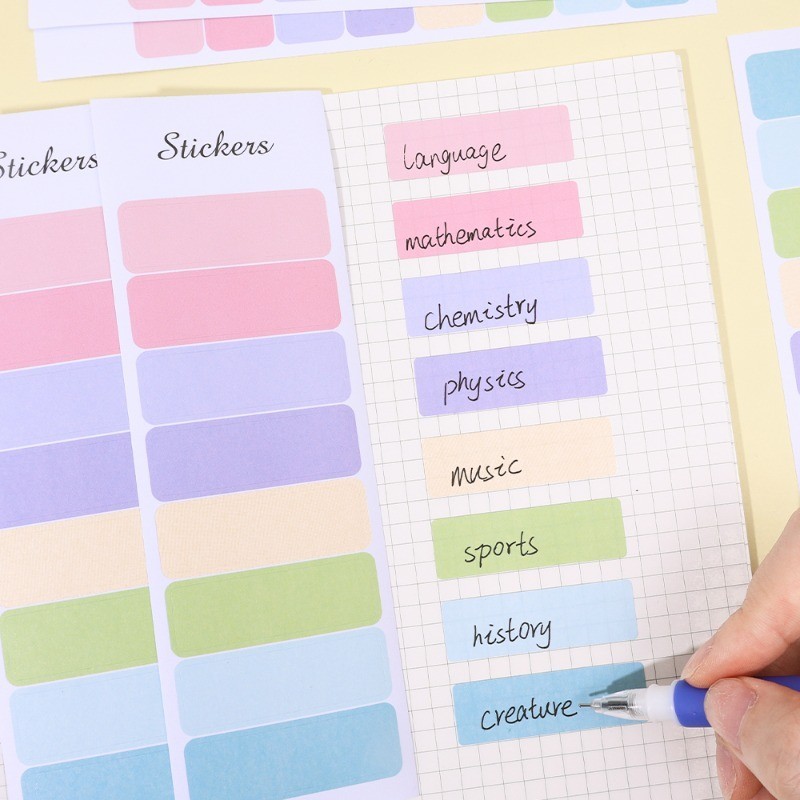 Stickers
Stickers
language
mathematics
chemistry
physics
music
sports
history
creature